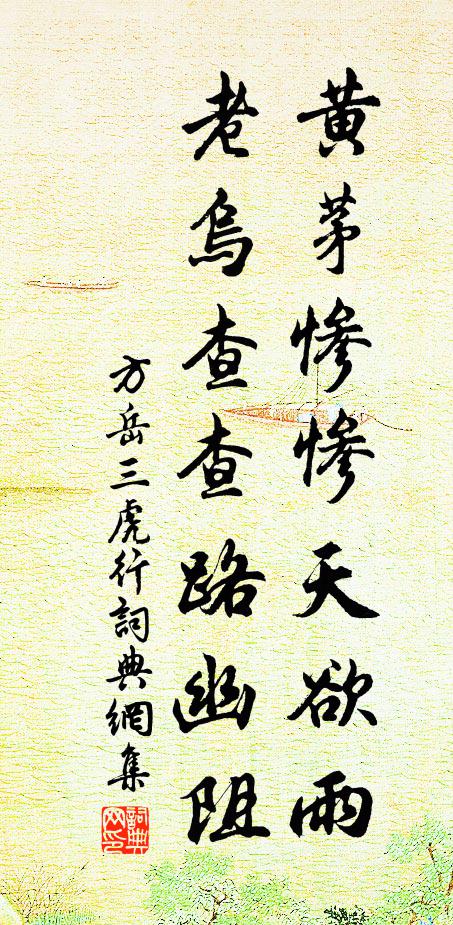 黄茅慘慘天欲雨
老烏查查路幽阻
方岳三虎行詞典網集
詞典
网印